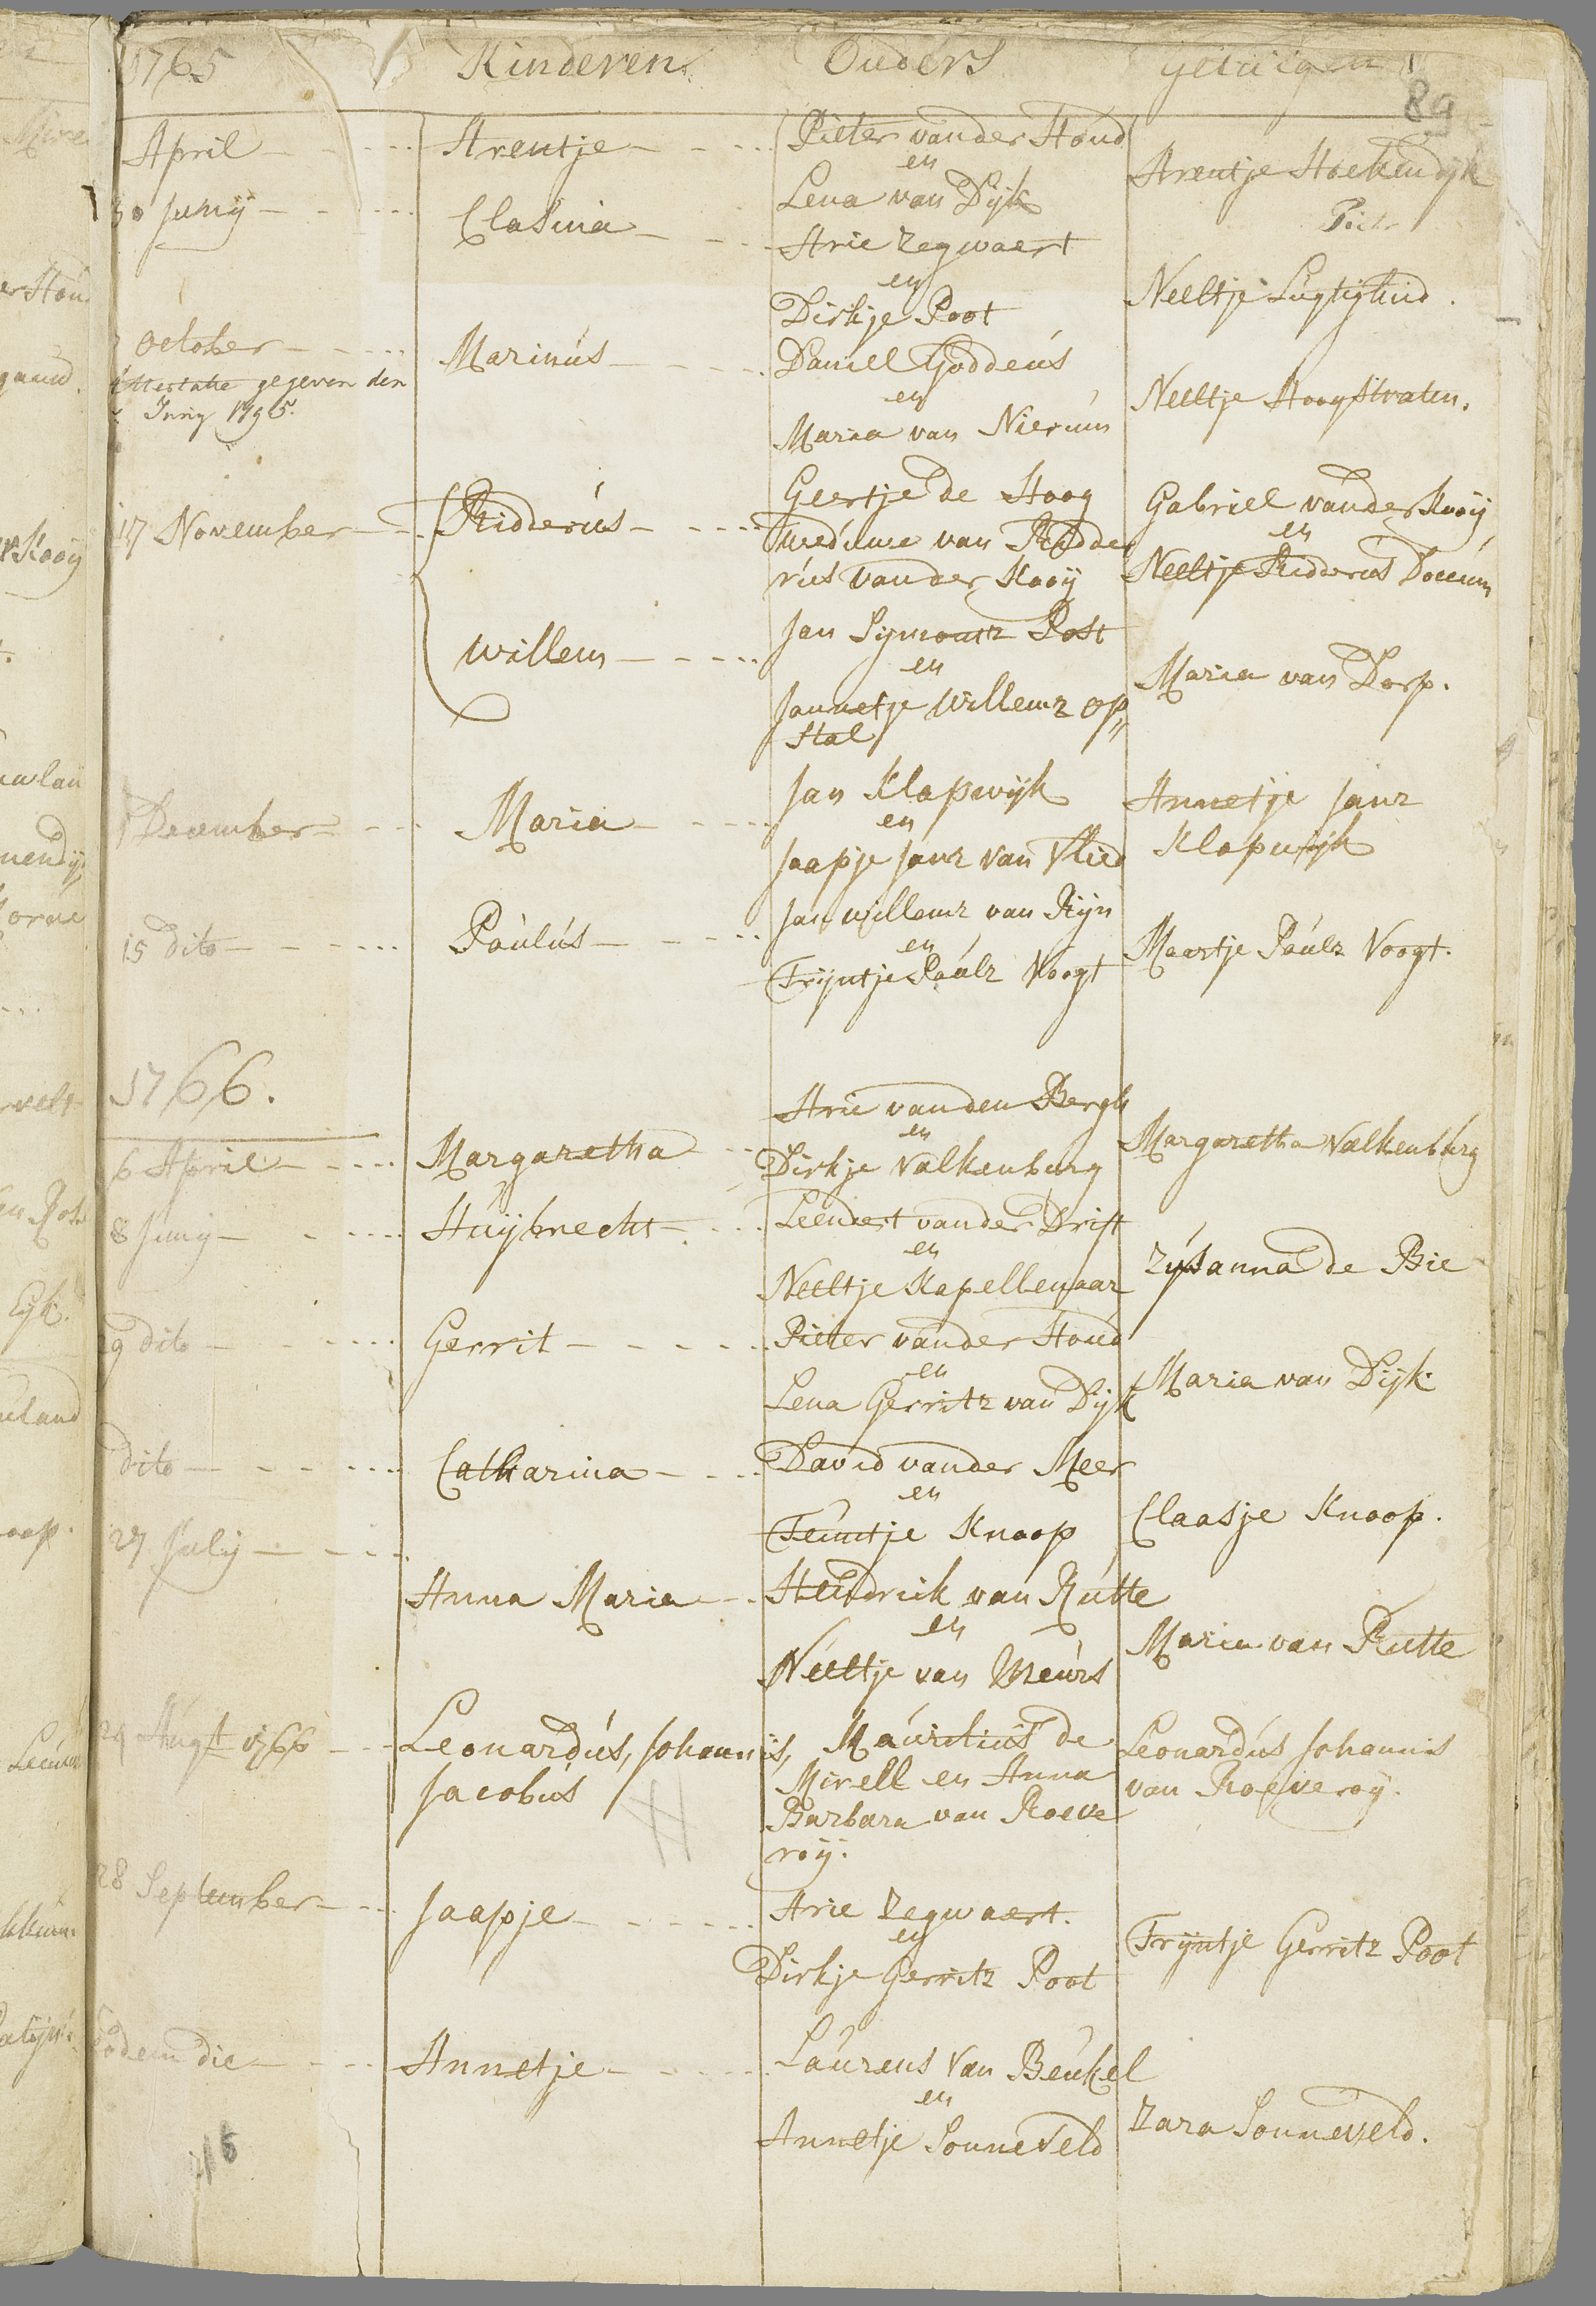 1765 Kinderen Ouders Getuigen
89
April Arentje Pieter vander Houd
en
Lena van Dijk
Arentje Hoekendijk
30 Junij Clasina Arie Zegwaert
en
Dirkje Poot
Neeltje Lugtigheid.
October Marinus Daniel Goddeus
en
Maria van Nierum
Neeltje Hoogstraten.
Attestatie gegeven den
Junij 1795.
17 November Ridderus Geertje de Hoog
weduwe van Ridde
rus vander Kooij
Gabriel vander Kooij
en
Neeltje Ridderus Doccum
Willem Jan Symontz Post
en
Jannetje Willemz op„
stal
Maria van Dorp.
December Maria Jan Klapwijk
en
Jaapje Janz van Vlied
Annetje Janz
Klapwijk
15 dito Paulus Jan Willemz van Rijn
en
Trijntje Paulz Voogt
Maartje Paulz Voogt.
1766.
6 April Margaretha Arie vanden Bergh
en
Dirkje Valkenburg
Margaretha Valkenburg
8 Junij Huijbrecht Leendert vander Drift
en
Neeltje Kapellenaar
Zusanna de Bie
29 dito Gerrit Pieter vander Houd
en
Lena Gerritz van Dijk
Maria van Dijk
dito Catharina David vander Meer
en
Teuntje Knoop
Claasje Knoop.
27 Julij Anna Maria Hendrick van Rutte
en
Neeltje van Meurs
Maria van Rutte
29 Augst 1766 Leonardus, Johannis,
Jacobus
Mauritius de
Mirell en Anna
Barbara van Roeve
roij.
Leonardus Johannis
van Roeveroij.
28 September Jaapje Arie Zegwaert.
en
Dirkje Gerritz Poot
Trijntje Gerritz Poot
Eodem die Annetje Laurens van Beukel
en
Annetje Sonneveld
Zara Sonneveld.